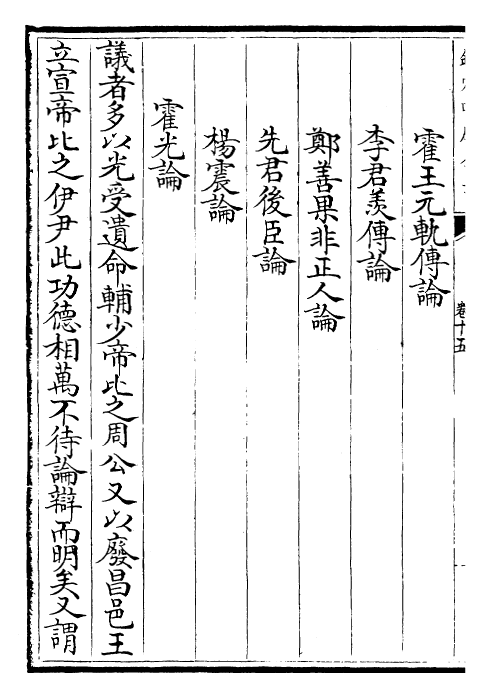 卷十五
霍王元軌傳論
李君羨傳論
鄭善果非正人論
先君後臣論
楊震論
霍光論
議者多以光受遺命輔少帝比之周公又以廢昌邑王
立宣帝比之伊尹此功德相萬不待論辯而明矣又謂